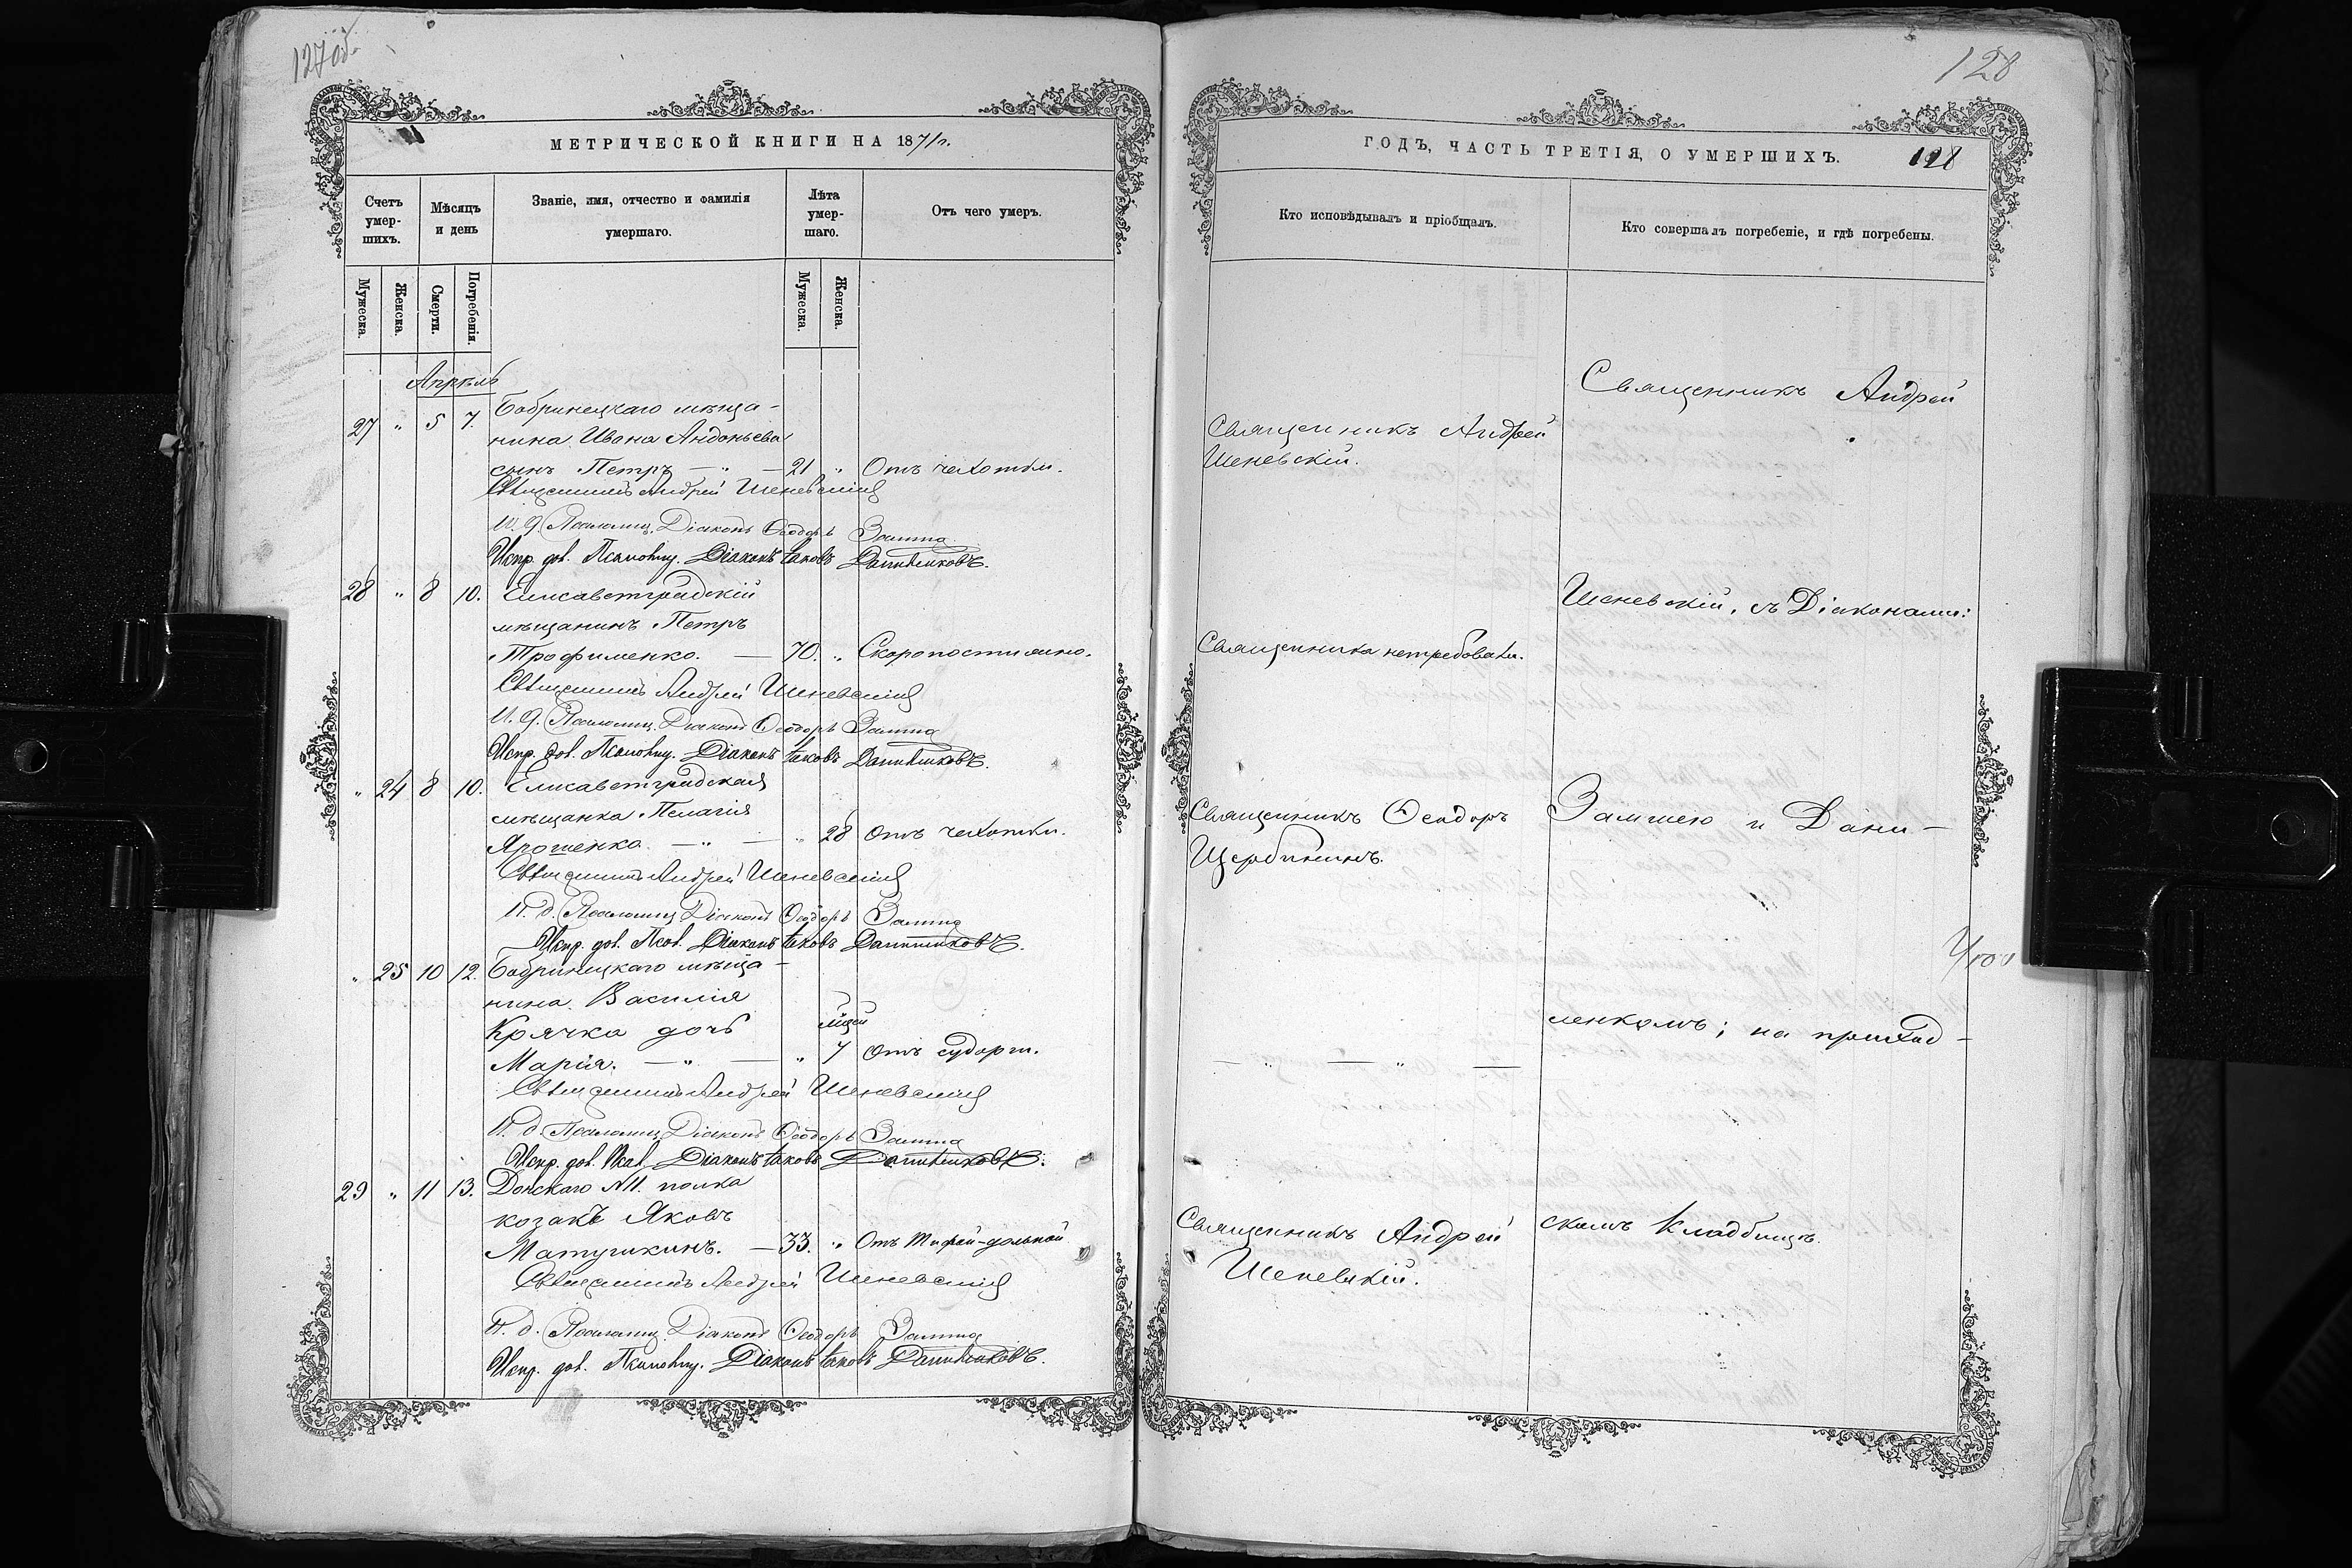 127об.
МЕТРИЧЕСКОЙ КНИГИ НА 1871 г.
Счетъ умер-шихъ.
Мѣсяцъ и день
Званіе, имя, отчество и фамилія умершаго.
Лѣта умер-шаго.
Отъ чего умеръ.
Мужеска.
Женска.
Смерти.
Погребенія.
Мужеска.
Женска.
Апрѣль
27 „ 5 7. Бобринецкаго мѣща-
нина Ивана Андоньева
сынъ Петръ — „ — 21 „ Отъ чахотки.
Священникъ Андрей Шеневскій
И. д. Псаломщ. Діаконъ Ѳеодоръ Замша
Испр. дол. Псаломщ. Діаконъ Іаковъ Даниленковъ.
28 „ 8 10. Елисаветградскій
мѣщанинъ Петръ
Трофименко. — 70. „ Скоропостижно.
Священникъ Андрей Шеневскій
И. д. Псаломщ. Діаконъ Ѳеодоръ Замша
Испр. дол. Псаломщ. Діаконъ Іаковъ Даниленковъ.
„ 24 8 10. Елисаветградская
мѣщанка Пелагія
Ярошенко. — „ — „ 28 Отъ чахотки.
Священникъ Андрей Шеневскій
И. д. Псаломщ. Діаконъ Ѳеодоръ Замша
Испр. дол. Псал. Діаконъ Іаковъ Даниленковъ.
„ 25 10 12. Бобринецкаго мѣща-
нина Василія
Крячка дочь
Марія. — „ — „ 7 Отъ судорги.
Священникъ Андрей Шеневскій
И. д. Псаломщ. Діаконъ Ѳеодоръ Замша
Испр. дол. Псал. Діаконъ Іаковъ Даниленковъ.
29 „ 11 13. Донскаго №11. полка
козакъ Яковъ
Матушкинъ. — 33. „ Отъ
Священникъ Андрей Шеневскій
И. д. Псаломщ. Діаконъ Ѳеодоръ Замша
Испр. дол. Псаломщ. Діаконъ Іаковъ Даниленковъ.
128
ГОДЪ, ЧАСТЬ ТРЕТІЯ, О УМЕРШИХЪ.
128
Кто исповѣдывалъ и пріобщалъ.
Кто совершалъ погребеніе, и гдѣ погребены.
Священникъ Андрей
Священникъ Андрей
Шеневскій.
Шеневскій, съ Діаконами:
Священника нетребовали.
Священникъ Ѳеодоръ
Щербининъ.
Замшею и Дани-
ленкомъ; на приход-
— „ — „ —
скомъ кладбищѣ.
Священникъ Андрей
Шеневскій.